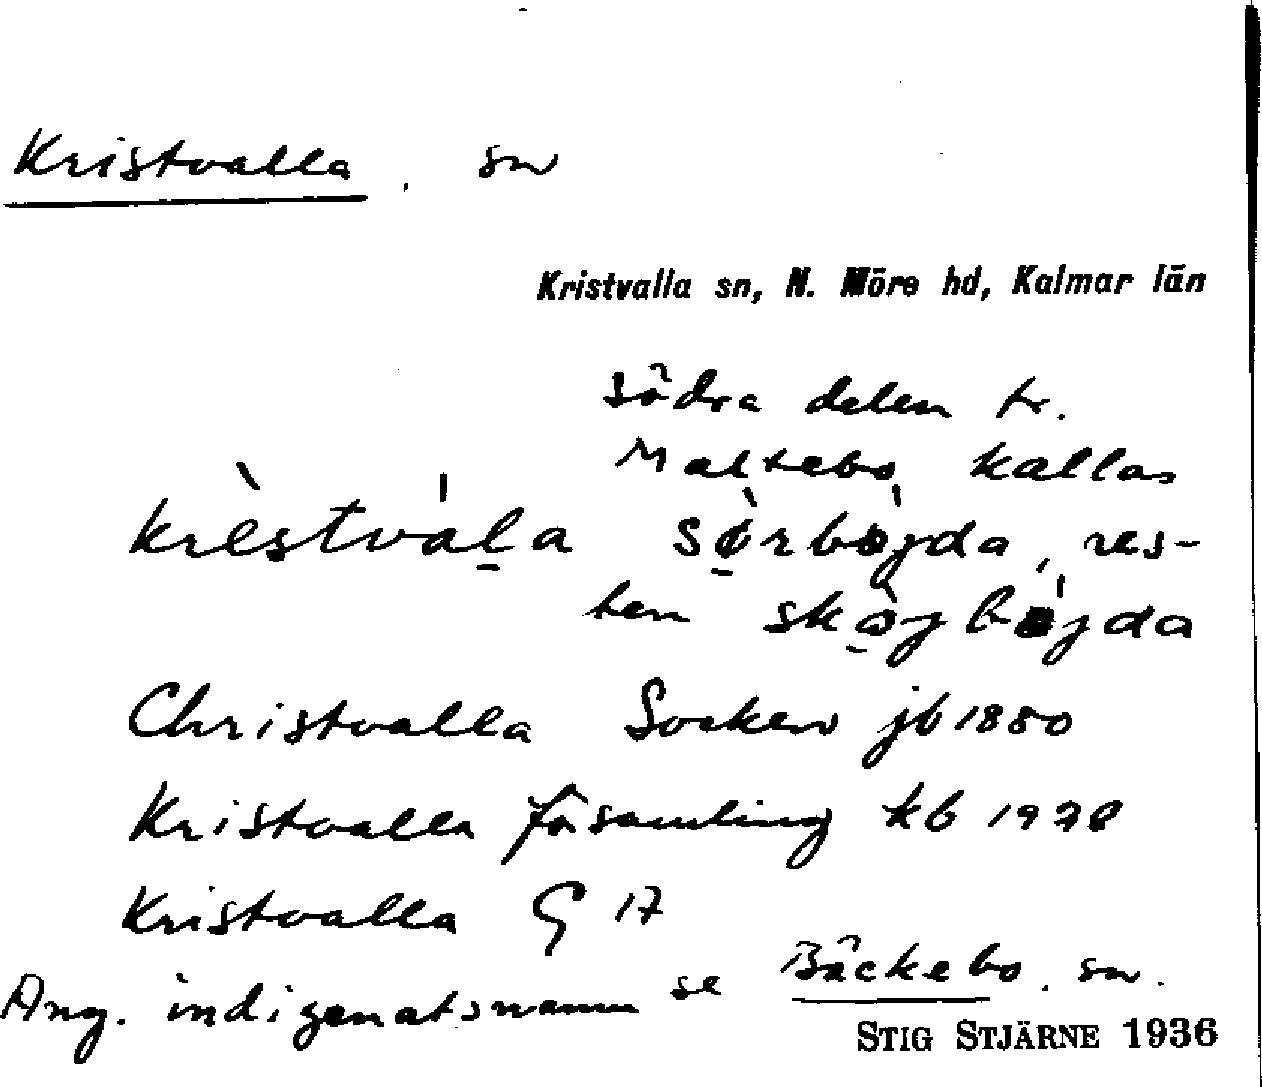 Kristvalla, sn
Kristvalla sn, N. Möre hd, Kalmar län
Södra delen tr.
Maltebo kallas
krèstvála sø̀rbö́jda, res-
ten skògbö́jda
Christvalla Socken jb 1880
Kristvalla församling kb 1928
Kristvalla G 17
Ang. indigenatsnamn se Bäckebo, sn.
STIG STJÄRNE 1936